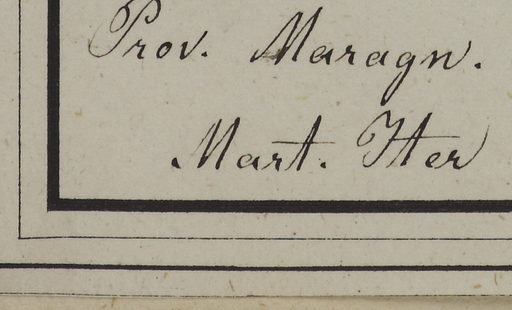 Prov. Maragn.
Mart. Iter